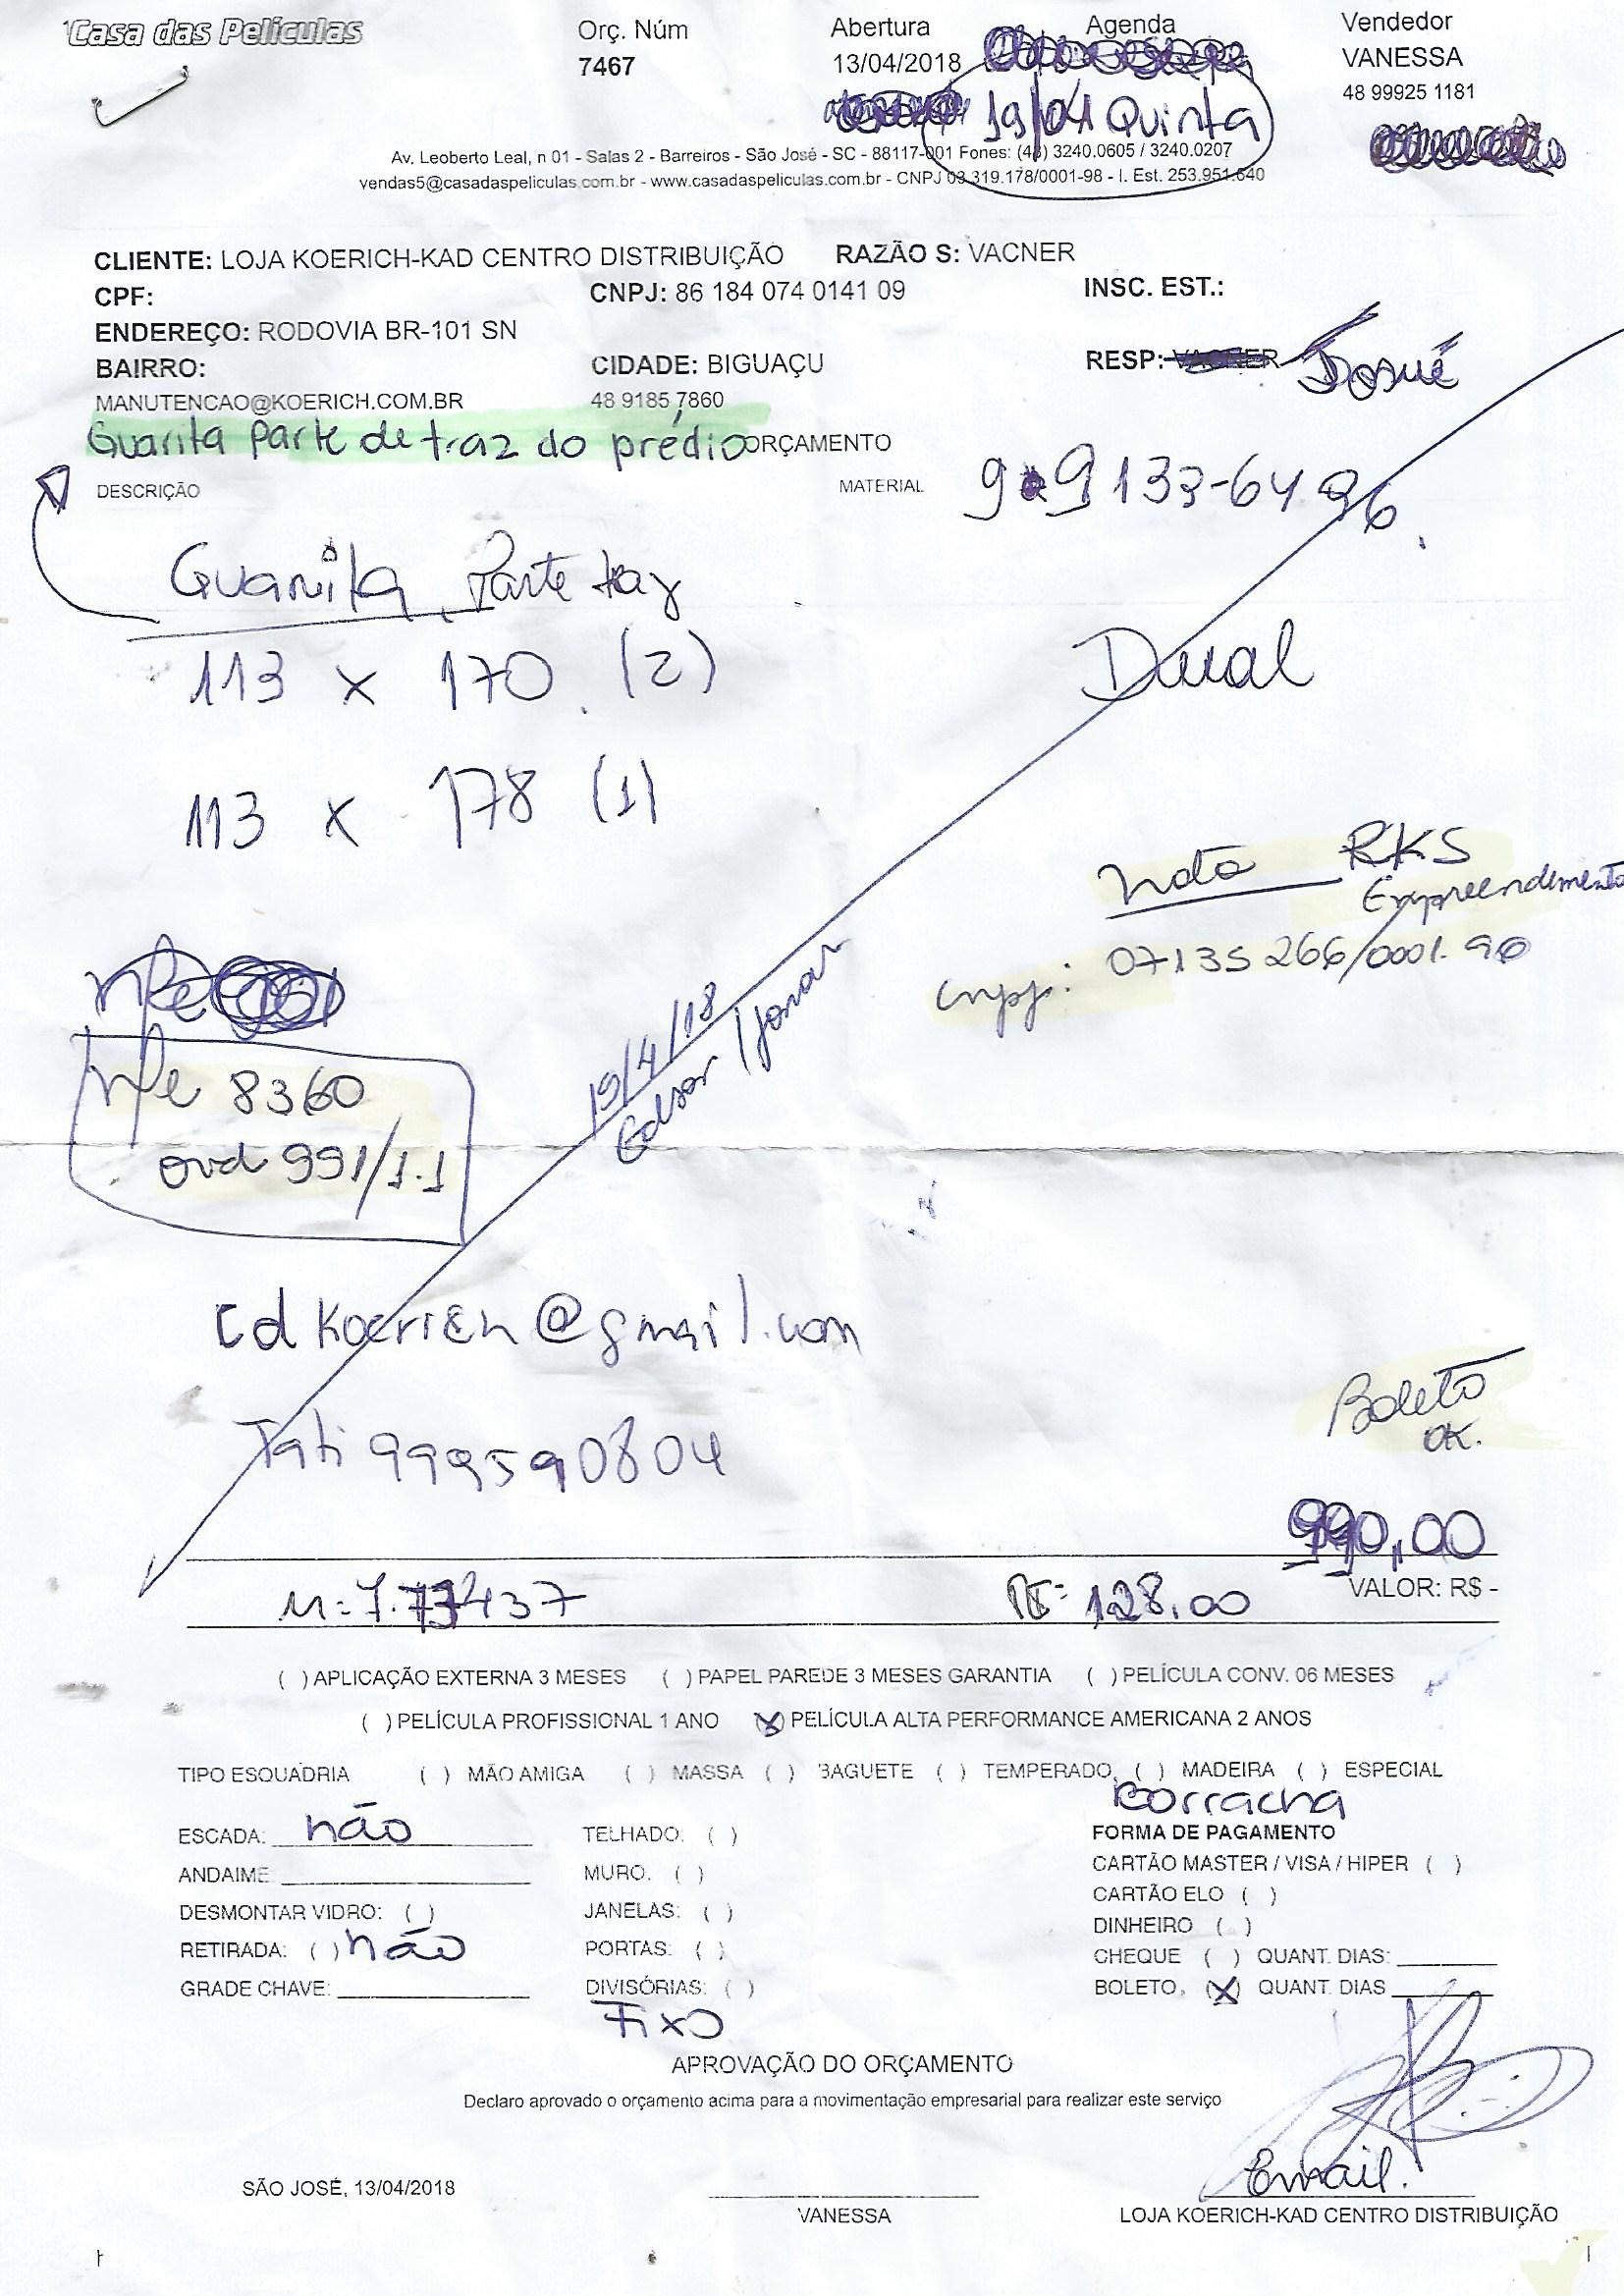 Casa das Películas
Orç. Núm
7467
Abertura
13/04/2018
Agenda
19/04 Quinta
Vendedor
VANESSA
48 99925 1181
Av. Leoberto Leal, n 01 - Salas 2 - Barreiros - São José - SC - 88117-001 Fones: (48) 3240.0605 / 3240.0207
vendas5@casadaspeliculas.com.br - www.casadaspeliculas.com.br - CNPJ 03.319.178/0001-98 - I. Est. 253.951.640
CLIENTE: LOJA KOERICH-KAD CENTRO DISTRIBUIÇÃO RAZÃO S: VACNER
CPF: CNPJ: 86 184 074 0141 09 INSC. EST.:
ENDEREÇO: RODOVIA BR-101 SN
BAIRRO: CIDADE: BIGUAÇU RESP: VACNER Josué
MANUTENCAO@KOERICH.COM.BR 48 9185 7860
Guarita parte de traz do prédio ORÇAMENTO
DESCRIÇÃO MATERIAL 9 9133-6496
Guarita Parte traz
113 x 170 (2) Dual
113 x 178 (1)
Nota RKS
Empreendimento
cnpj: 07135266/0001.90
Nfe
Nfe 8360
ovd 991/1.1
19/4/18
Edson / Jonas
cdkoerich@gmail.com
Boleto
OK.
Tati 999590804
990,00
VALOR: R$ -
128,00
( ) APLICAÇÃO EXTERNA 3 MESES ( ) PAPEL PAREDE 3 MESES GARANTIA ( ) PELÍCULA CONV. 06 MESES
( ) PELÍCULA PROFISSIONAL 1 ANO (X) PELÍCULA ALTA PERFORMANCE AMERICANA 2 ANOS
TIPO ESQUADRIA ( ) MÃO AMIGA ( ) MASSA ( ) BAGUETE ( ) TEMPERADO ( ) MADEIRA ( ) ESPECIAL
Borracha
ESCADA: não TELHADO: ( ) FORMA DE PAGAMENTO
ANDAIME MURO. ( ) CARTÃO MASTER / VISA / HIPER ( )
CARTÃO ELO ( )
DESMONTAR VIDRO: ( ) JANELAS: ( ) DINHEIRO ( )
RETIRADA: ( ) não PORTAS: ( ) CHEQUE ( ) QUANT. DIAS:
GRADE CHAVE: DIVISÓRIAS: ( ) BOLETO, (X) QUANT. DIAS
Fixo
APROVAÇÃO DO ORÇAMENTO
Declaro aprovado o orçamento acima para a movimentação empresarial para realizar este serviço
Email.
SÃO JOSÉ, 13/04/2018
VANESSA
LOJA KOERICH-KAD CENTRO DISTRIBUIÇÃO